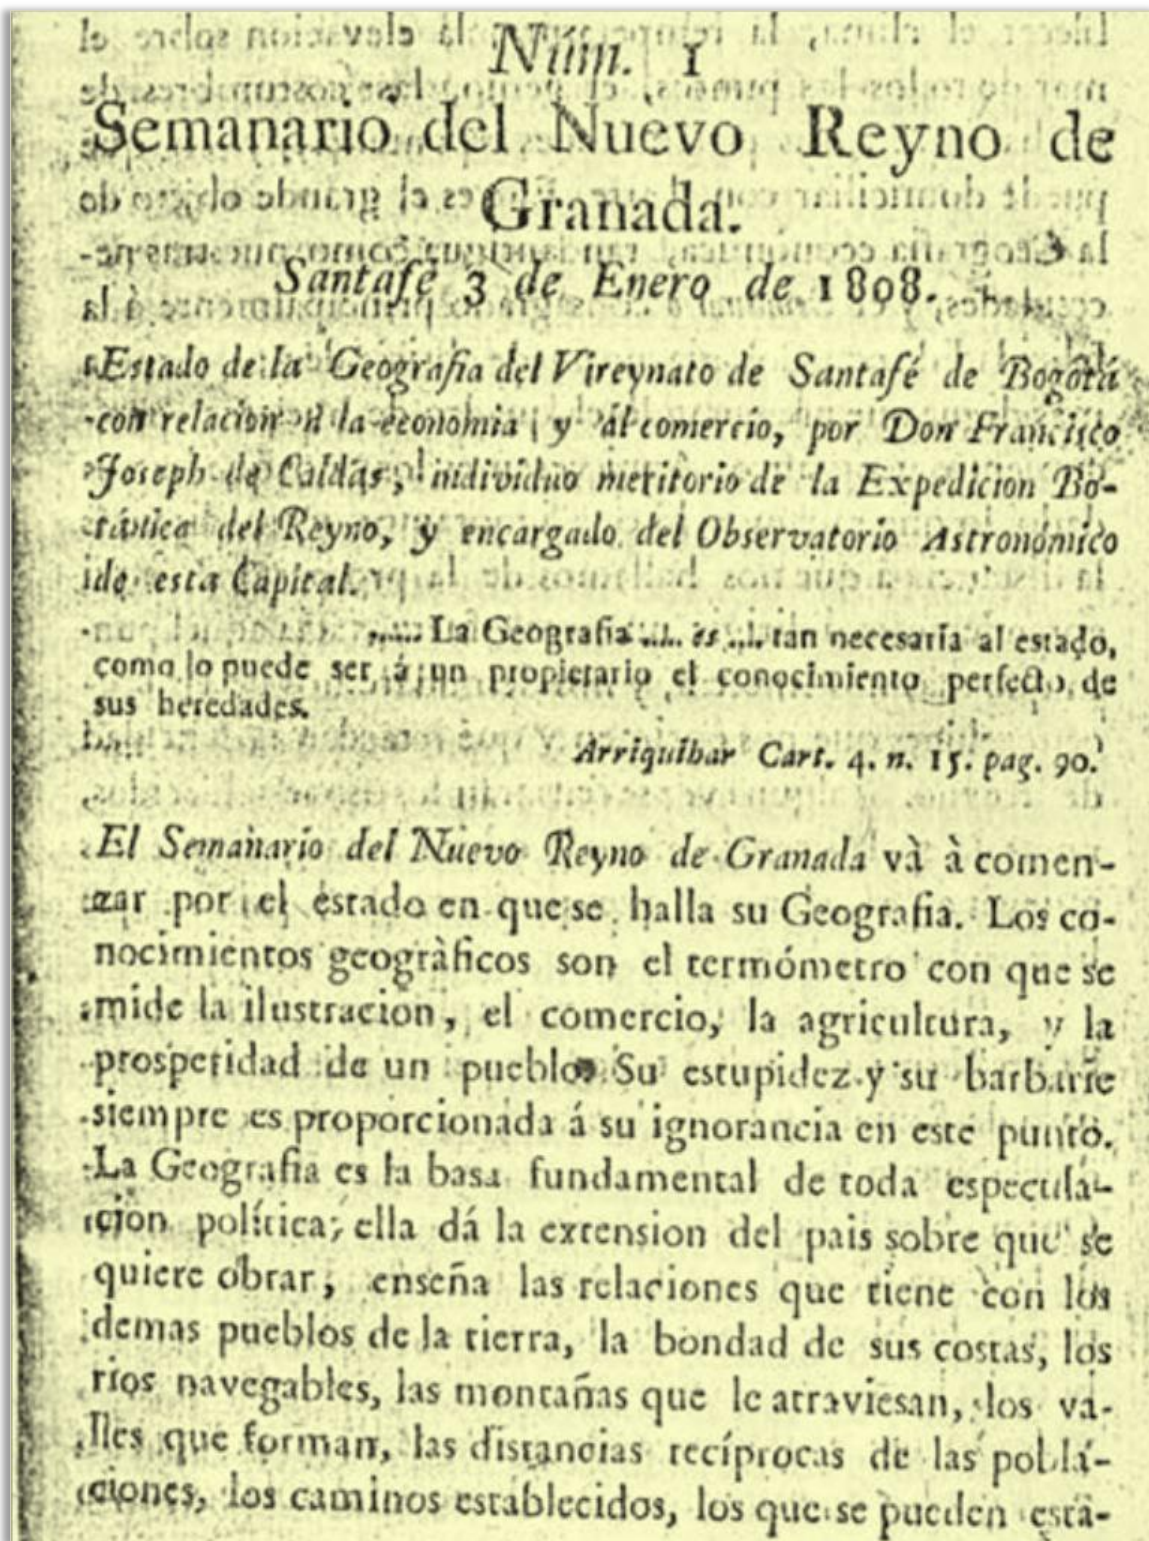 Núm. 1
Semanario del Nuevo Reyno de
Granada.
Santafé 3 de Enero de 1808.
Estado de la Geografia del Vireynato de Santafé de Bogotá
con relacion á la economia, y al comercio, por Don Francisco
Joseph de Caldas, individuo meritorio de la Expedicion Bo-
tánica del Reyno, y encargado del Observatorio Astronómico
de esta Capital.
...... La Geografia ..... es ..... tan necesaria al estado,
como lo puede ser á un propietario el conocimiento perfecto de
sus heredades.
Arriquibar Cart. 4. n. 15. pag. 90.
El Semanario del Nuevo Reyno de Granada và à comen-
zar por el estado en que se halla su Geografia. Los co-
nocimientos geogràficos son el termómetro con que se
mide la ilustracion, el comercio, la agricultura, y la
prosperidad de un pueblo. Su estupidez y su barbarie
siempre es proporcionada á su ignorancia en este punto.
La Geografia es la basa fundamental de toda especula-
cion política; ella dá la extension del pais sobre que se
quiere obrar, enseña las relaciones que tiene con los
demas pueblos de la tierra, la bondad de sus costas, los
rios navegables, las montañas que le atraviesan, los va-
lles que forman, las distancias recíprocas de las pobla-
ciones, los caminos establecidos, los que se pueden esta-